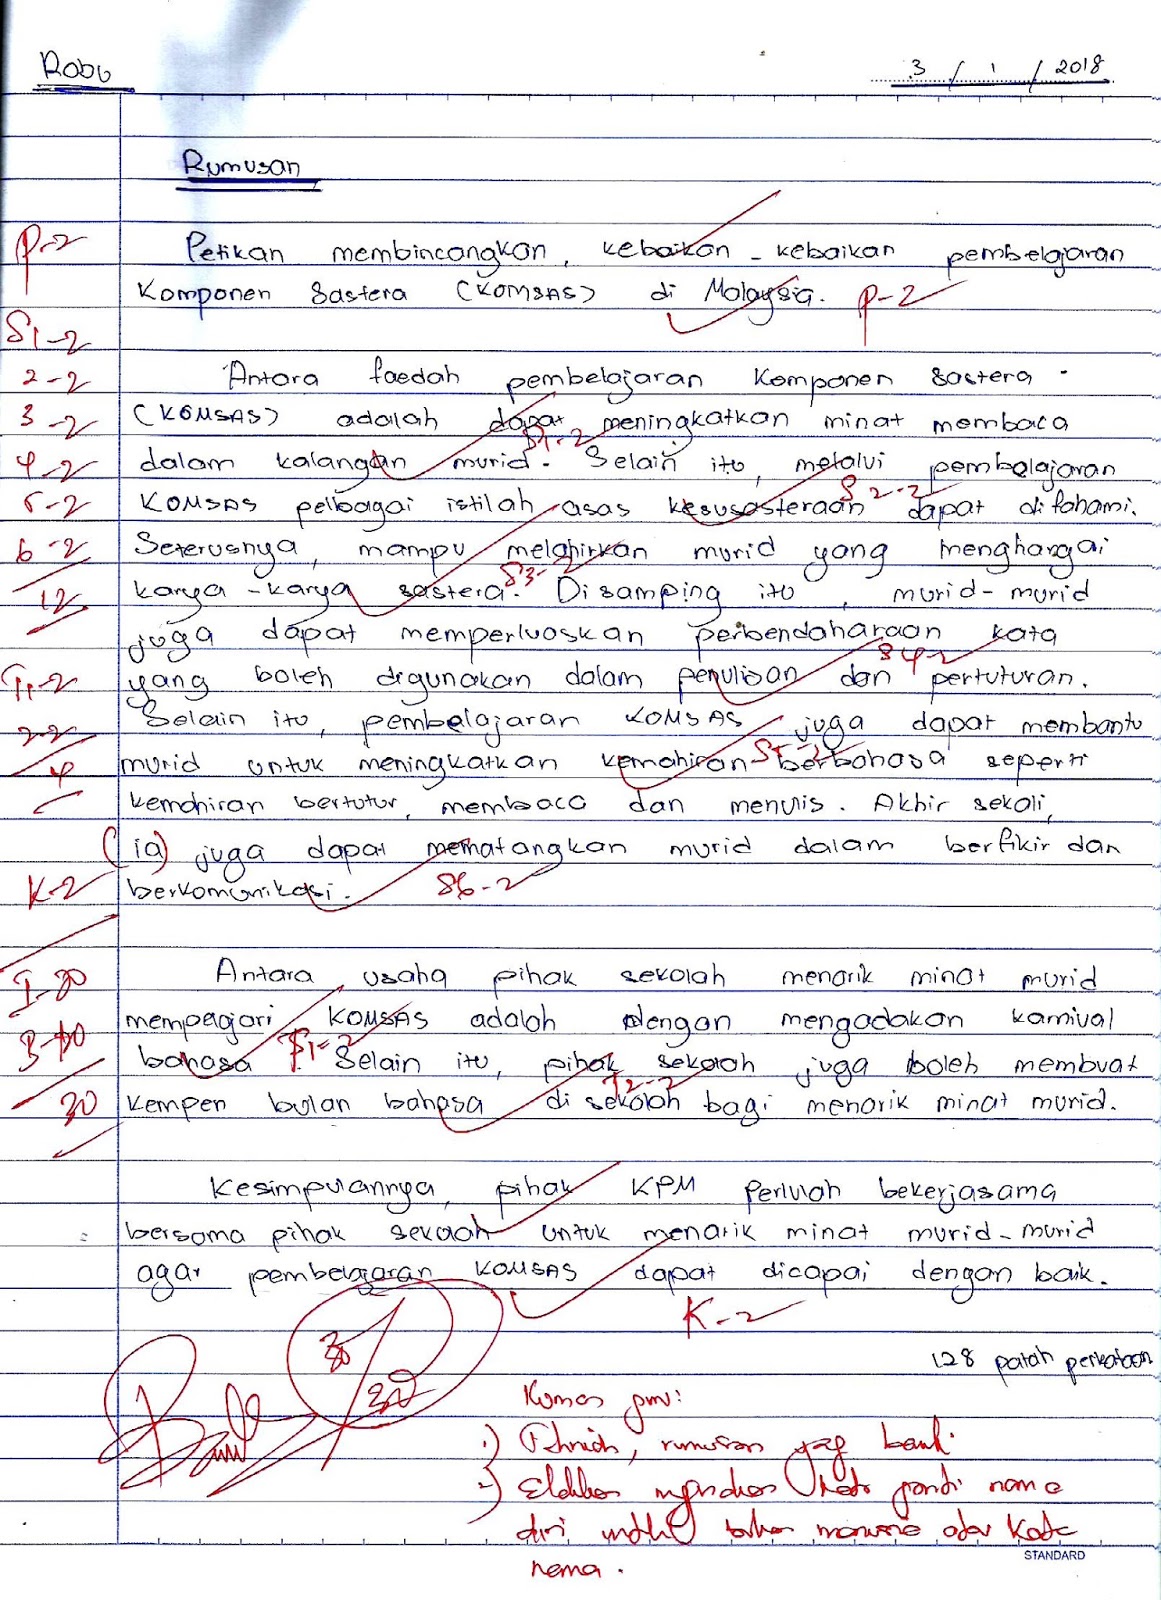 Rabu
3 / 1 / 2018
Rumusan
P-2
Petikan membincangkan, kebaikan - kebaikan pembelajaran
Komponen Sastera (KOMSAS) di Malaysia. P-2
S1-2
2-2
Antara faedah pembelajaran Komponen Sastera
3-2
(KOMSAS) adalah dapat meningkatkan minat membaca
S1-2
4-2
dalam kalangan murid. Selain itu, melalui pembelajaran
S2-2
5-2
KOMSAS pelbagai istilah asas kesusasteraan dapat difahami.
6-2
Seterusnya, mampu melahirkan murid yang menghargai
S3-2
12
karya-karya sastera. Disamping itu, murid-murid
juga dapat memperluaskan perbendaharaan kata
S4-2
T1-2
yang boleh digunakan dalam penulisan dan pertuturan.
2-2
Selain itu, pembelajaran KOMSAS juga dapat membantu
S5-2
4
murid untuk meningkatkan kemahiran berbahasa seperti
kemahiran bertutur, membaca dan menulis. Akhir sekali,
(ia) juga dapat mematangkan murid dalam berfikir dan
K-2
berkomunikasi. S6-2
I-20
Antara usaha pihak sekolah menarik minat murid
B-10
mempejari KOMSAS adalah dengan mengadakan karnival
30
bahasa. T1-2 Selain itu, pihak sekolah juga boleh membuat
T2-2
kempen bulan bahasa di sekolah bagi menarik minat murid.
Kesimpulannya, pihak KPM perlulah bekerjasama
bersama pihak sekolah untuk menarik minat murid-murid
agar pembelajaran KOMSAS dapat dicapai dengan baik.
K-2
128 patah perkataan
30/30
Komen guru:
1) Tahniah, rumusan yang baik.
2) Elakkan kata ganti nama
diri untuk bukan manusia atau kata
nama.
STANDARD